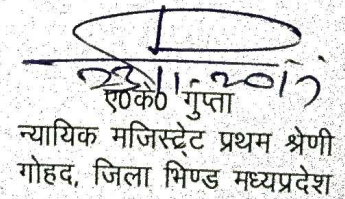 23/11-2017
ए0के0 गुप्ता
न्यायिक मजिस्ट्रेट प्रथम श्रेणी
गोहद, जिला भिण्ड मध्यप्रदेश